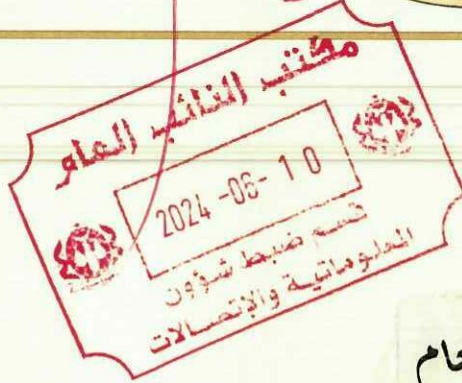 مكتب النائب العام
2024 -06- 10
قسم ضبط شؤون
المعلوماتية والإتصالات